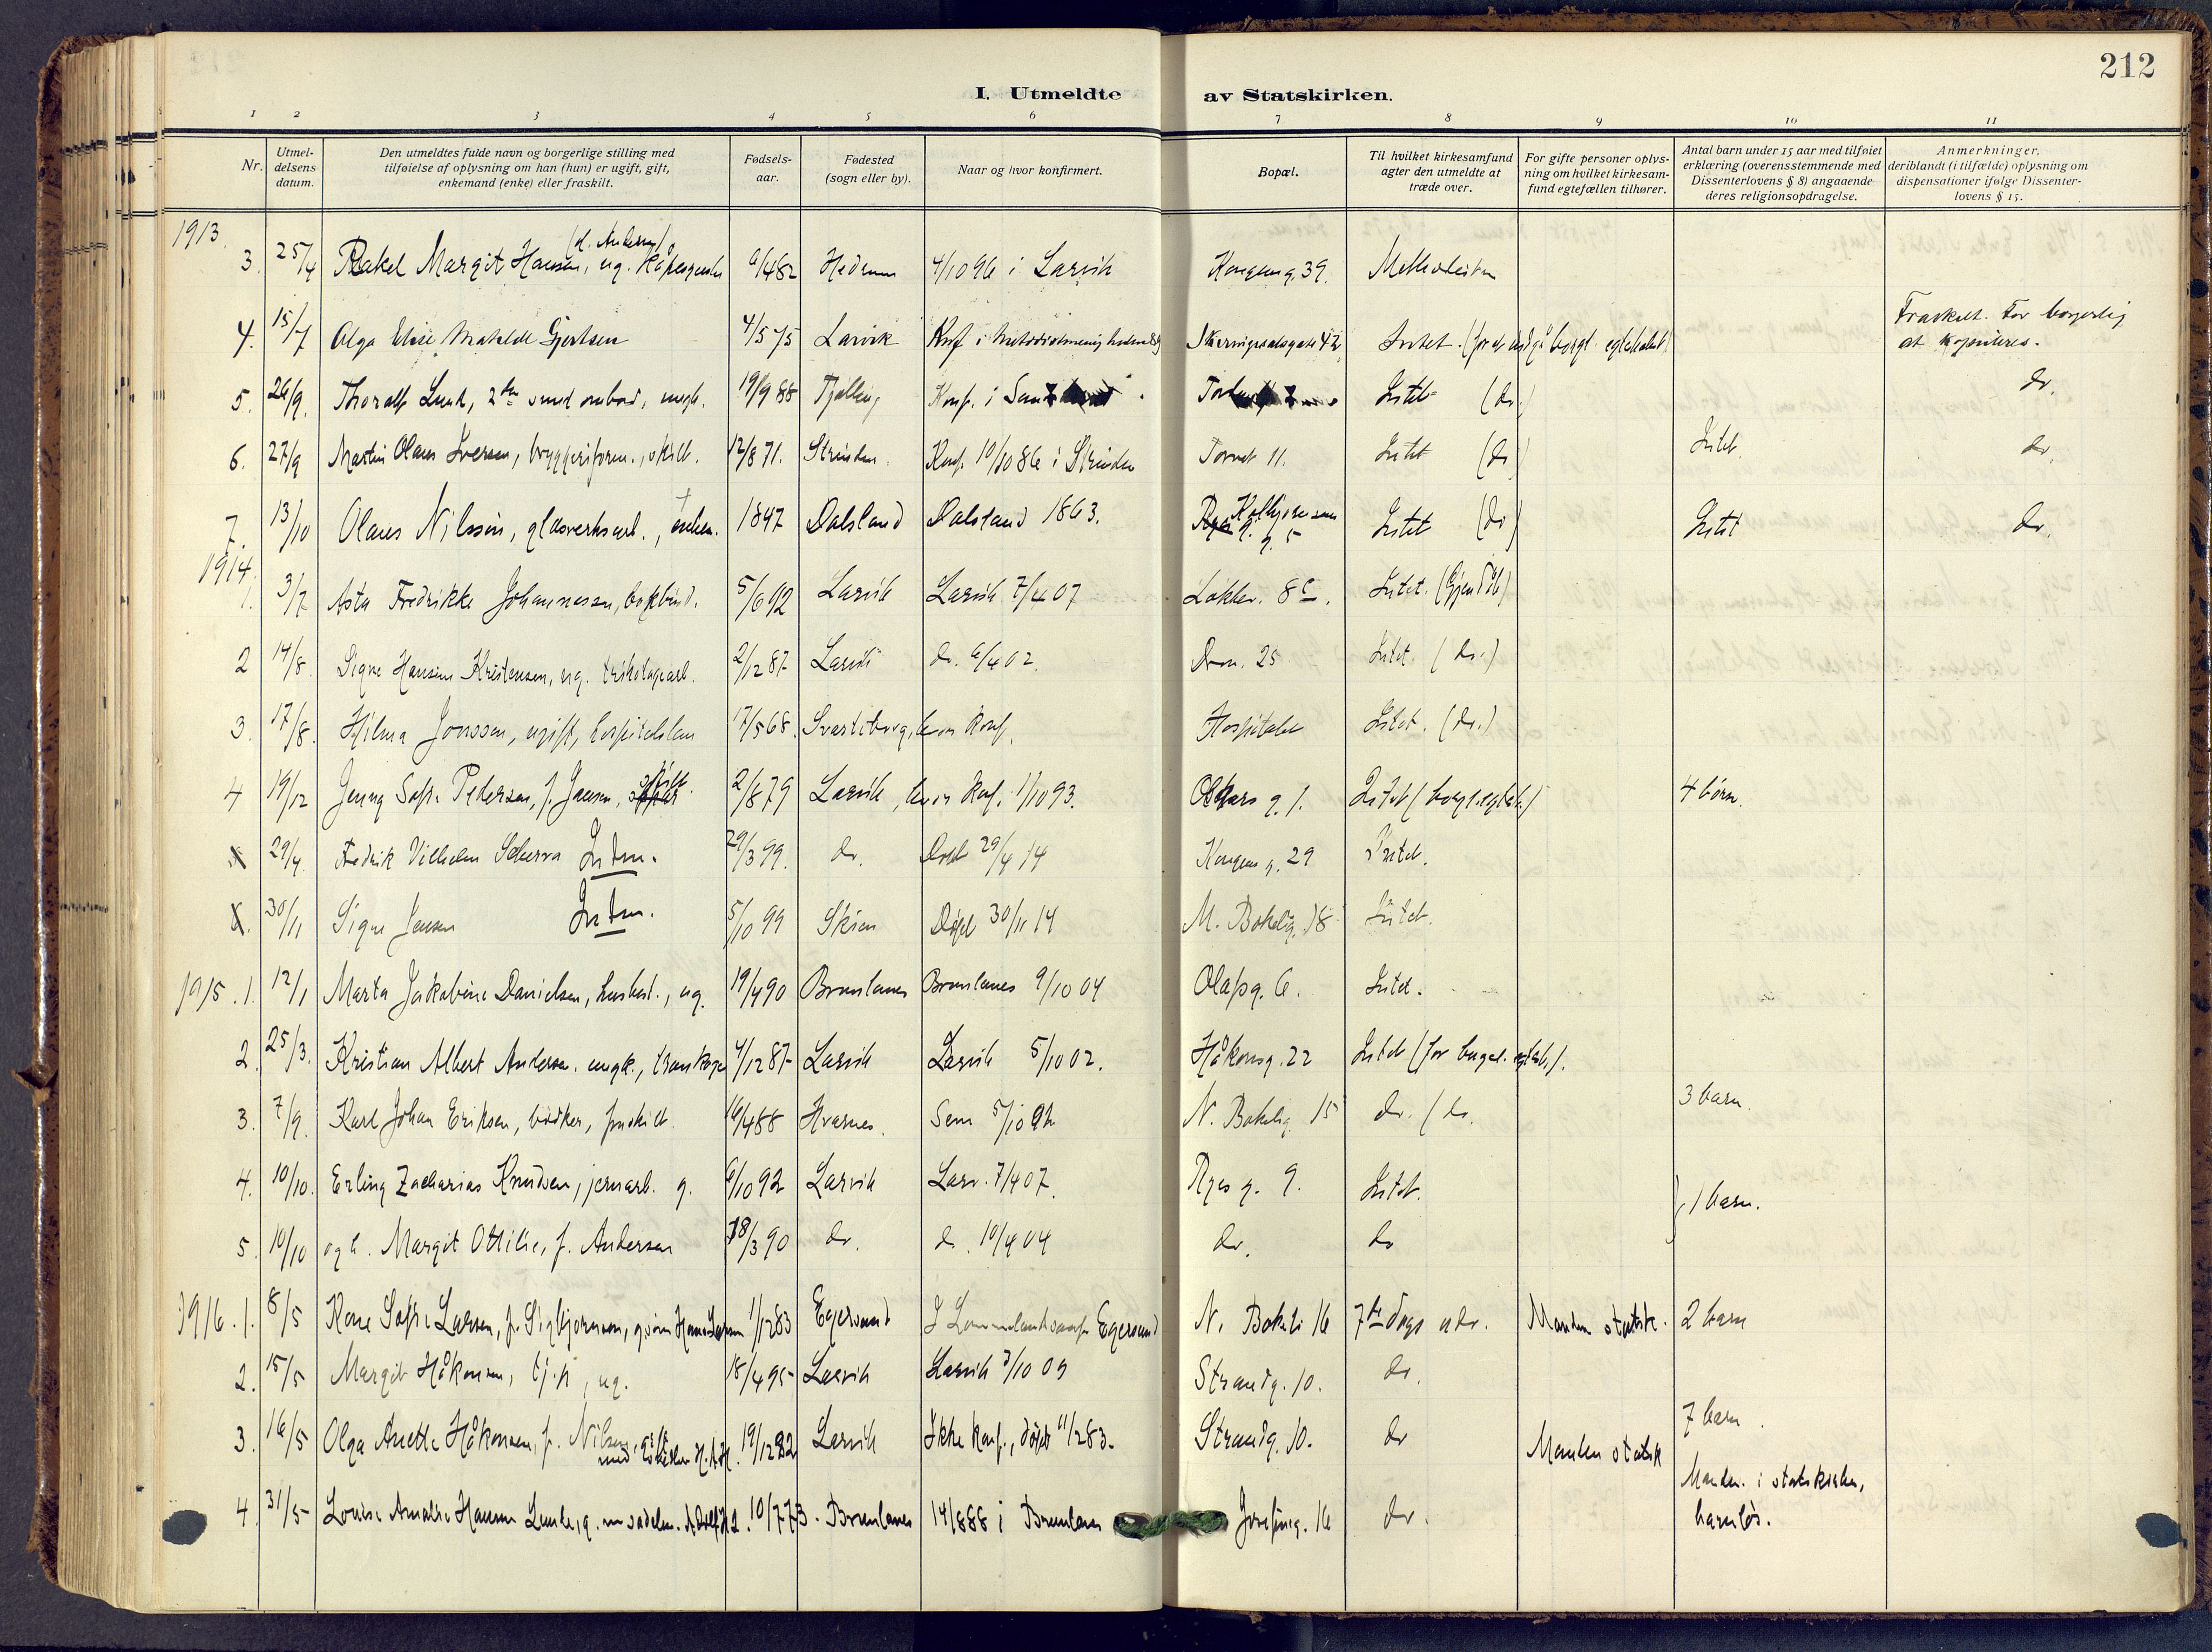 212
I. Utmeldte av Statskirken.
1 2 3 4 5 6 7 8 9 10 11
Nr.
Utmeldelsens datum.
Den utmeldtes fulde navn og borgerlige stilling med tilføielse af oplysning om han (hun) er ugift, gift, enkemand (enke) eller fraskilt.
Fødselsaar.
Fødested (sogn eller by).
Naar og hvor konfirmert.
Bopæl.
Til hvilket kirkesamfund agter den utmeldte at træde over.
For gifte personer oplysning om hvilket kirkesamfund egtefællen tilhører.
Antal barn under 15 aar med tilføiet erklæring (overensstemmende med Dissenterlovens § 8) angaaende deres religionsopdragelse.
Anmerkninger, deriblandt (i tilfælde) oplysning om dispensationer ifølge Dissenterlovens § 15.
1913.
3. 25/4 Rakel Margit Hansen, ug. 6/4 82 Hedrum 4/10 96 i Larvik Kongensg. 39.
4. 15/7 Olga Elise Mathilde Gjertsen 4/5 75 Larvik Intet.
5. 26/9. Thoralf Lund, 19/9 88 Tjølling Konf. i Intet (do.) do.
6. 27/9 Martin Olaus Iversen, 12/8 71. Strinden. Konf. 10/10 86 i Strinden Torvet 11. Intet (do) Intet. do.
7. 13/10 Olaus Nilsson, glasverksarb., 1847 Dalsland Dalsland 1863. g. 5 Intet (do) Intet do.
1914.
1. 3/7 Asta Fredrikke Johannessen, 5/6 92 Larvik Larvik 7/4 07 Intet.
2 14/8. Signe Hansine Kristensen, ug. trikotagearb. 2/12 87 Larvik do. 6/4 02. 25 Intet. (do.)
3. 17/8. Hilma Jonsson, ugift, 17/5 68. konf. Hospitalet Intet. (do.)
4 19/12 Jenny Sofie Pedersen, f. Jansen, 2/8 79 Larvik, konf. 1/10 93. Oskars g. 1. Intet 4 børn.
29/4. Fredrik Vilhelm 29/3 99. do. Døbt 29/4 14 Kongens g. 29 Intet.
30/11 Signe Jensen 5/10 99 Skien Døpt 30/11 14 M. Bøkelig. 18 Intet.
1915. 1. 12/1 Marta Jakobine Danielsen, ug. 19/4 90 Brunlanes Brunlanes 9/10 04 Olafsg. 6. Intet.
2. 25/3. Kristian Albert Andersen. ungk., 4/12 87 Larvik Larvik 5/10 02. Håkonsg. 22 Intet
3. 7/9. Karl Johan Eriksen, bødker, fraskilt. 16/4 88 Hvarnes. Sem N. Bøkelig. 15 do. 3 barn.
4. 10/10. Erling Zacharias Knudsen, jernarb. g. 6/10 92 Larvik Larv. 7/4 07. Ryes g. 9. Intet.
} 1 barn.
5. 10/10 og h. Margit Ottilie, f. Andersen 18/3 90 do. do. 10/4 04 do. do
1916. 1. 8/5 Sofie Larsen, f. Sigbjørnsen, 1/12 83 Egersund Egersund N. Bøkeli 16 7de dags adv. Manden statsk. 2 barn
2. 15/5 Margit Håkonsen, ug. 18/4 95 Larvik Larvik 3/10 09 Strandg. 10. do.
3. 16/5 Olga Anette Håkonsen, f. Nilsen, 19/12 82 Larvik Ikke konf., døpt 11/2 83. Strandg. 10. do Manden statsk 7 barn.
4. 31/5 Louise Amalie Hansen 10/7 73. Brunlanes 14/8 88 i Brunlanes 16 do. Manden i statskirken, barnløs.